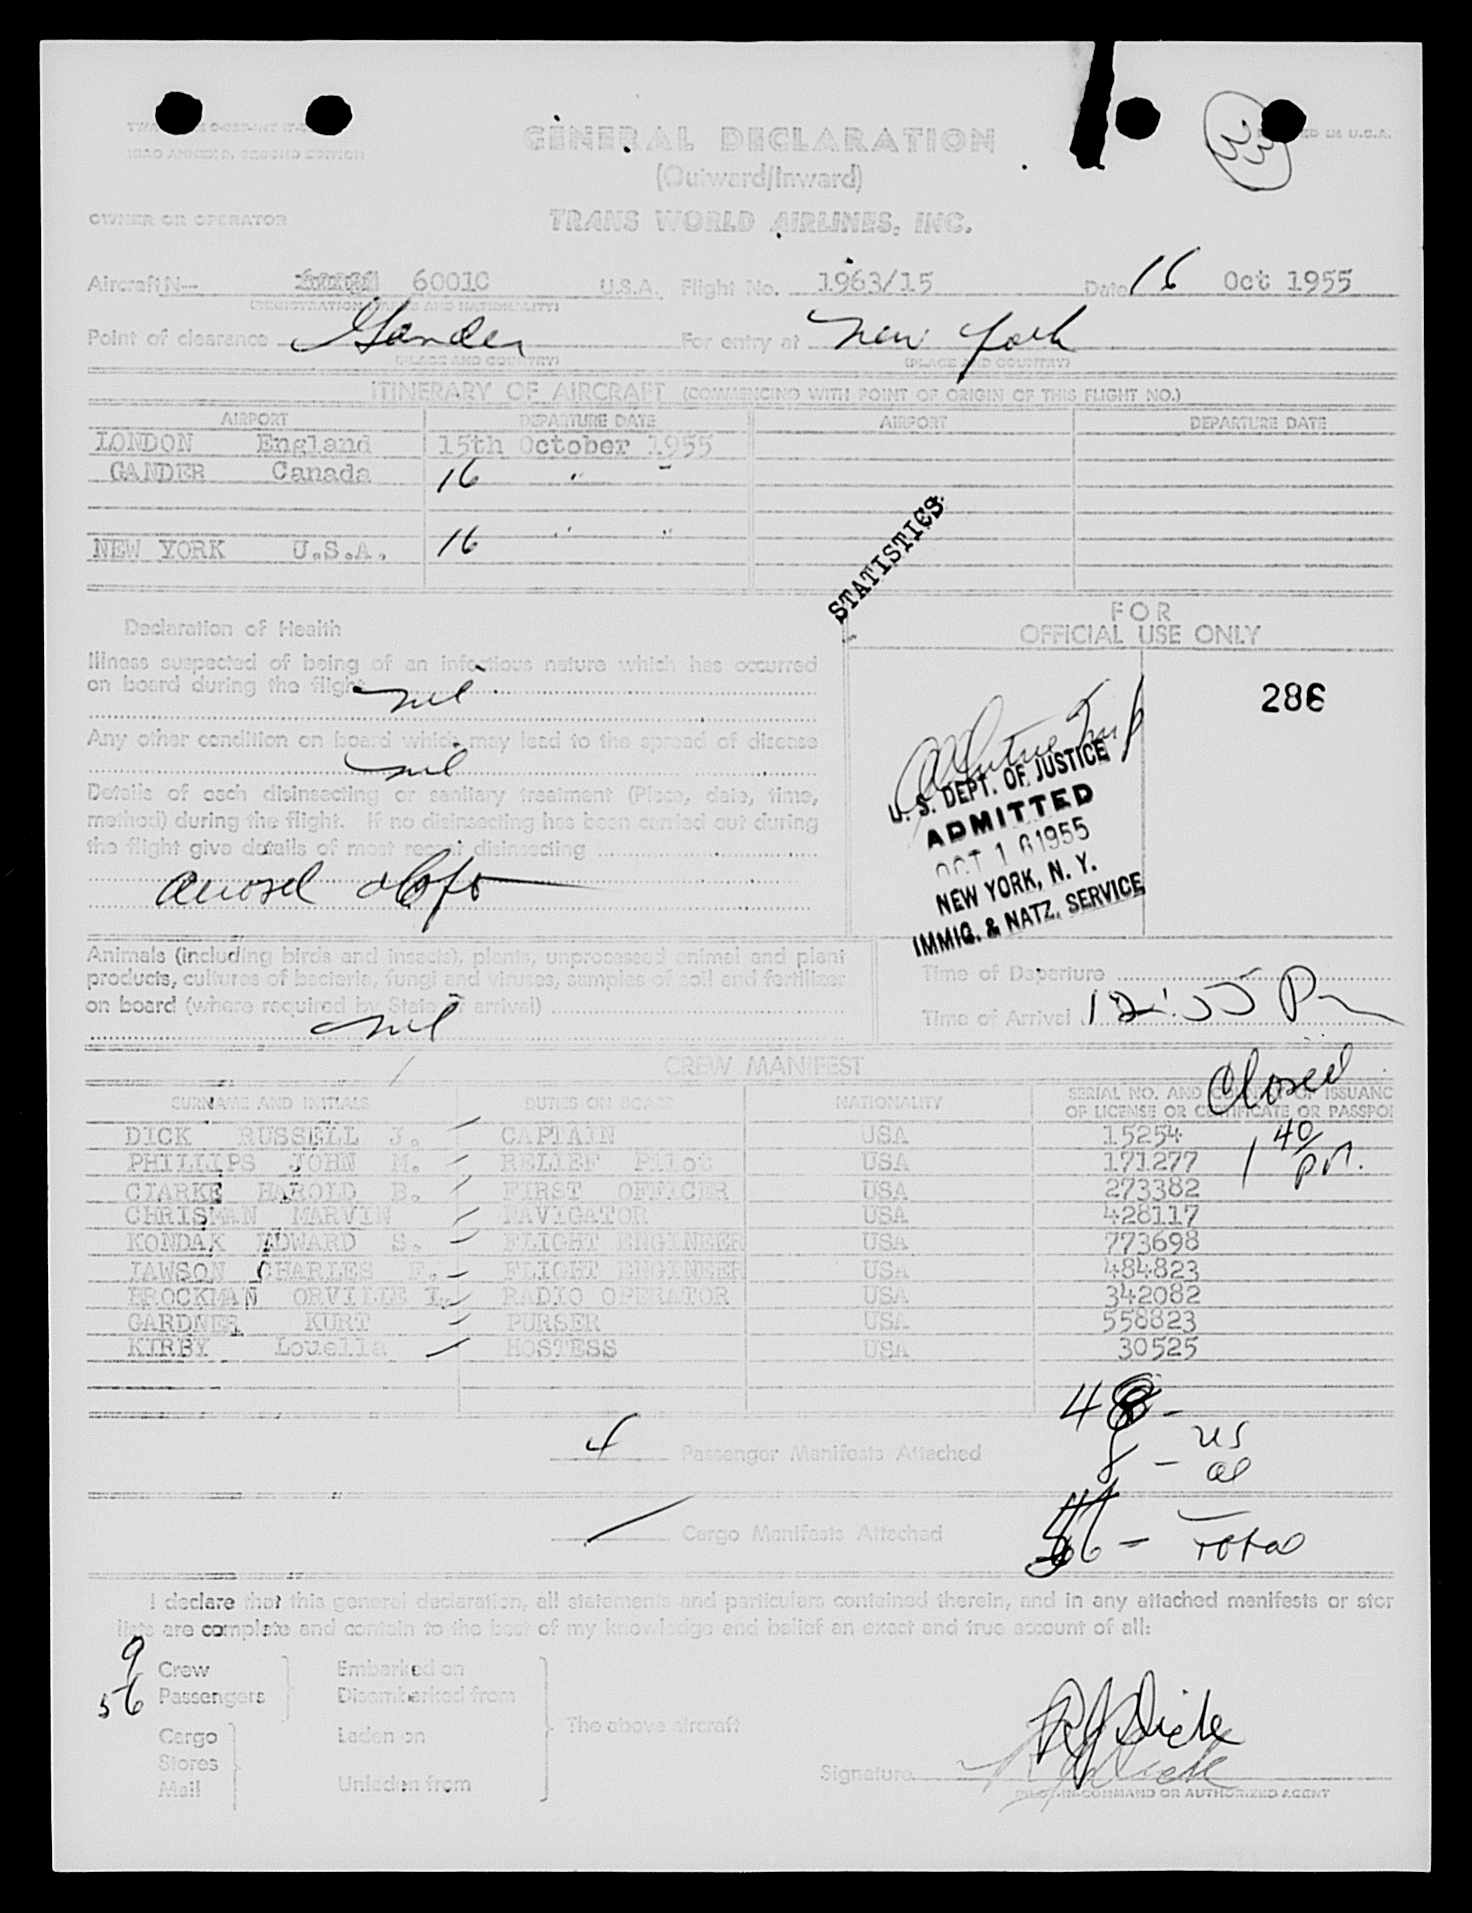 GENERAL DECLARATION
ICAO ANNEX 9, SECOND EDITION
(Outward/Inward)
OWNER OR OPERATOR TRANS WORLD AIRLINES, INC.
Aircraft N— 6001C U.S.A. Flight No. 1963/15 Date 16 Oct 1955
(REGISTRATION MARKS AND NATIONALITY)
Point of clearance Gander For entry at New York
(PLACE AND COUNTRY) (PLACE AND COUNTRY)
ITINERARY OF AIRCRAFT (COMMENCING WITH POINT OF ORIGIN OF THIS FLIGHT NO.)
AIRPORT DEPARTURE DATE AIRPORT DEPARTURE DATE
LONDON England 15th October 1955
GANDER Canada 16 " "
NEW YORK U.S.A. 16 " "
STATISTICS
FOR
OFFICIAL USE ONLY
Declaration of Health
Illness suspected of being of an infectious nature which has occurred
on board during the flight nil
Any other condition on board which may lead to the spread of disease
nil
Details of each disinsecting or sanitary treatment (Place, date, time,
method) during the flight. If no disinsecting has been carried out during
the flight give details of most recent disinsecting
286
U. S. DEPT. OF JUSTICE
ADMITTED
OCT 16 1955
NEW YORK, N. Y.
IMMIG. & NATZ. SERVICE
Animals (including birds and insects), plants, unprocessed animal and plant
products, cultures of bacteria, fungi and viruses, samples of soil and fertilizer
on board (where required by State of arrival)
nil
Time of Departure
Time of Arrival 12:55 Pm
CREW MANIFEST
Closed
1 40/ pm.
SURNAME AND INITIALS DUTIES ON BOARD NATIONALITY SERIAL NO. AND COUNTRY OF ISSUANC
OF LICENSE OR CERTIFICATE OR PASSPOR
DICK RUSSELL J. CAPTAIN USA 15254
PHILLIPS JOHN M. RELIEF Pilot USA 171277
CLARKE HAROLD B. FIRST OFFICER USA 273382
CHRISMAN MARVIN NAVIGATOR USA 428117
KONDAK EDWARD S. FLIGHT ENGINEER USA 773698
LAWSON CHARLES F. FLIGHT ENGINEER USA 484823
BROCKMAN ORVILLE L. RADIO OPERATOR USA 342082
GARDNER KURT PURSER USA 558823
KIRBY Louella HOSTESS USA 30525
48 - US
4 Passenger Manifests Attached
8 - al
/ Cargo Manifests Attached
56 - Total
I declare that this general declaration, all statements and particulars contained therein, and in any attached manifests or stor
lists are complete and contain to the best of my knowledge and belief an exact and true account of all:
9 Crew Embarked on
56 Passengers Disembarked from
The above aircraft
Cargo Laden on
Stores
Mail Unladen from
R J Dick
Signature R J Dick
PILOT-IN-COMMAND OR AUTHORIZED AGENT